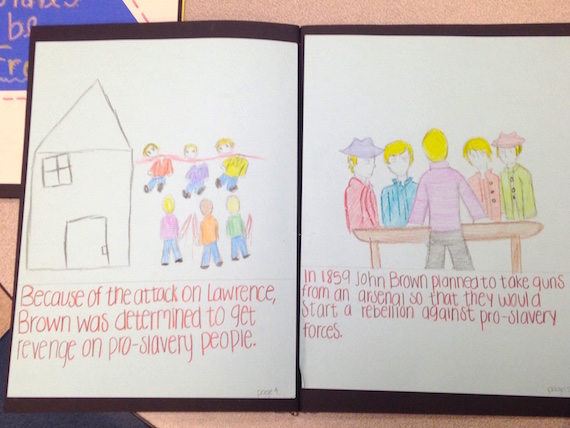 be
Because of the attack on Lawrence,
Brown was determined to get
revenge on pro-slavery people.
page 4
In 1859 John Brown planned to take guns
from an arsenal so that they would
start a rebellion against pro-slavery
forces.
page